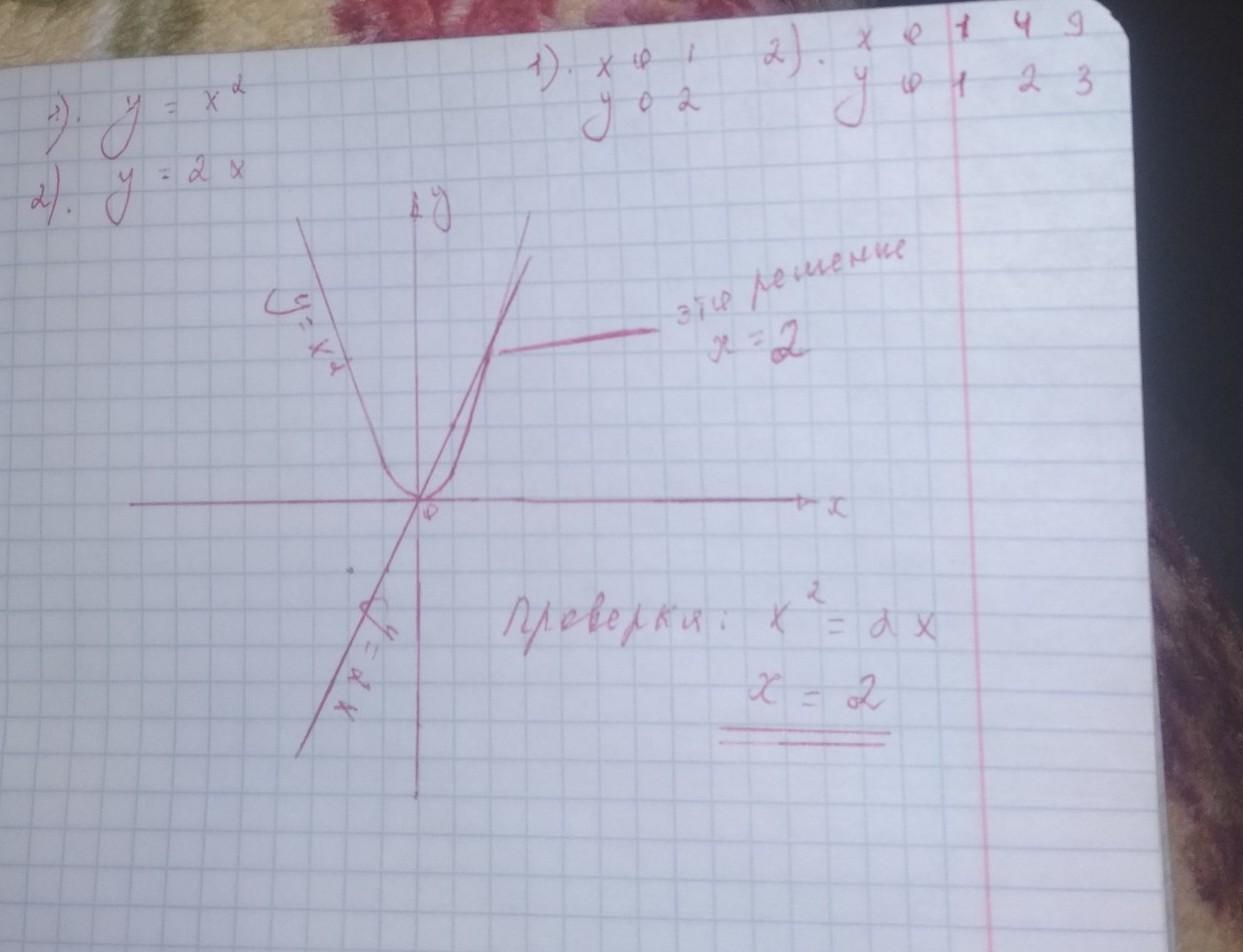 1). y = x²
2). y = 2x
1). x 0 1
y 0 2
2). x 0 1 4 9
y 0 1 2 3
y
y = x²
это решение
x = 2
x
0
y = 2x
Проверка: x² = 2x
x = 2